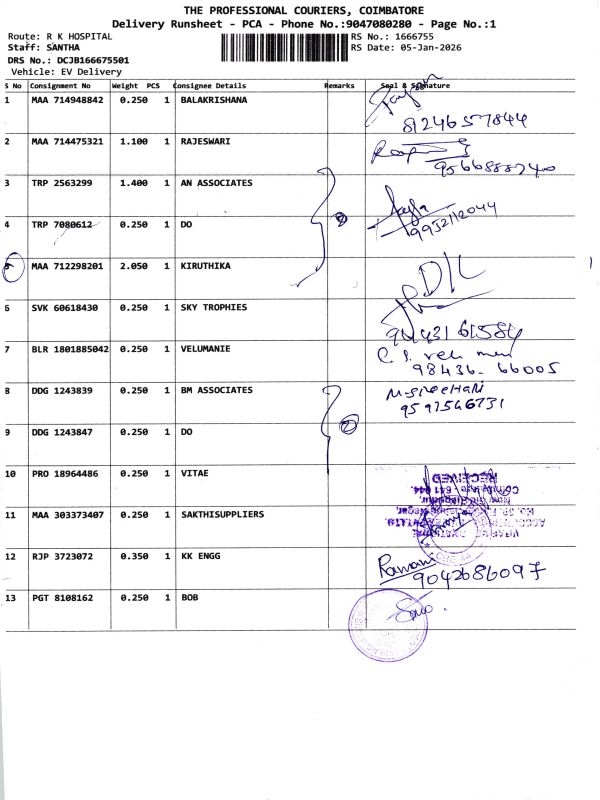 THE PROFESSIONAL COURIERS, COIMBATORE
Delivery Runsheet - PCA - Phone No.:9047080280 - Page No.:1
Route: R K HOSPITAL RS No.: 1666755
Staff: SANTHA RS Date: 05-Jan-2026
DRS No.: DCJB166675501
Vehicle: EV Delivery
S No Consignment No Weight PCS Consignee Details Remarks Seal & Signature
1 MAA 714948842 0.250 1 BALAKRISHANA
8124657844
2 MAA 714475321 1.100 1 RAJESWARI
9566588740
3 TRP 2563299 1.400 1 AN ASSOCIATES
2
9952112044
4 TRP 7080612 0.250 1 DO
5 MAA 712298201 2.050 1 KIRUTHIKA
6 SVK 60618430 0.250 1 SKY TROPHIES
94431 61584
7 BLR 1801885042 0.250 1 VELUMANIE
98436- 66005
8 DDG 1243839 0.250 1 BM ASSOCIATES
9597546731
2
9 DDG 1243847 0.250 1 DO
10 PRO 18964486 0.250 1 VITAE
RECEIVED
11 MAA 303373407 0.250 1 SAKTHISUPPLIERS
12 RJP 3723072 0.350 1 KK ENGG
Ramani
9042686097
13 PGT 8108162 0.250 1 BOB